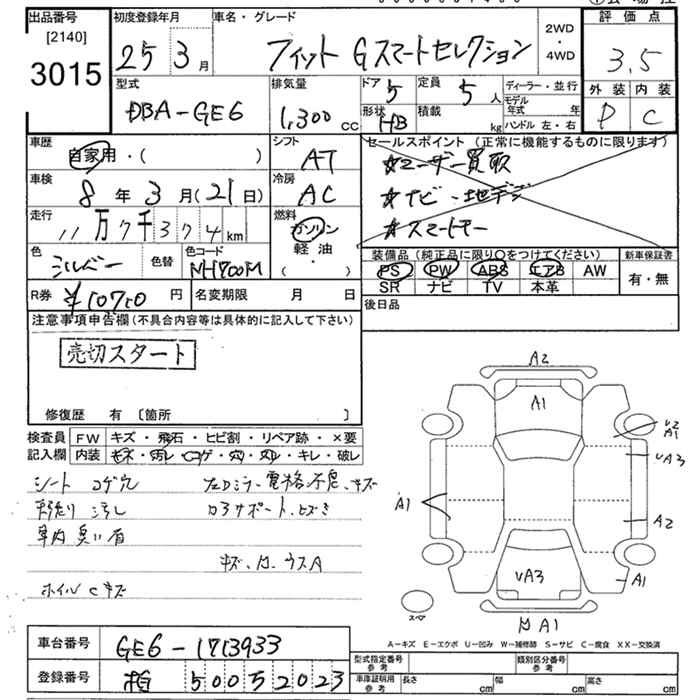 出品番号
[2140]
3015
初度登録年月
25 3月
車名・グレード
フィット Gスマートセレクション
2WD
・
4WD
評価点
3.5
外装 内装
D C
型式
DBA-GE6
排気量
1,300 cc
ドア 5
定員 5人
形状 HB
積載 kg
ディーラー・並行
モデル年式 年
ハンドル 左・右
車歴
自家用・( )
シフト
AT
車検
8年3月(21日)
冷房
AC
走行
11万7千374km
燃料
ガソリン
軽・油
( )
色
シルバー
色替
色コード
NH700M
R券 ¥10710円
名変期限 月 日
セールスポイント(正常に機能するものに限ります)
☆ユーザー買取
☆ナビ・地デジ
☆スマートキー
装備品(純正品に限り○をつけてください)
新車保証書
PS PW ABS エアB AW
SR ナビ TV 本革
有・無
後日品
注意事項申告欄(不具合内容等は具体的に記入して下さい)
売切スタート
修復歴 有 〔箇所 〕
検査員記入欄
FW キズ・飛石・ヒビ割・リペア跡・×要
内装 キズ・汚レ・コゲ・穴・スレ・キレ・破レ
シート コゲ穴
汚し
車内臭い有
ホイルCキズ
A2
A1
A1
VA3
A1
A2
A1
VA3
A1
スペア
A-キズ E-エクボ U-凹み W-補修跡 S-サビ C-腐食 XX-交換済
車台番号 GE6-1713933
登録番号 50052023
型式指定番号 参考
類別区分番号 参考
車庫証明用 参考
長さ cm 幅 cm 高さ cm